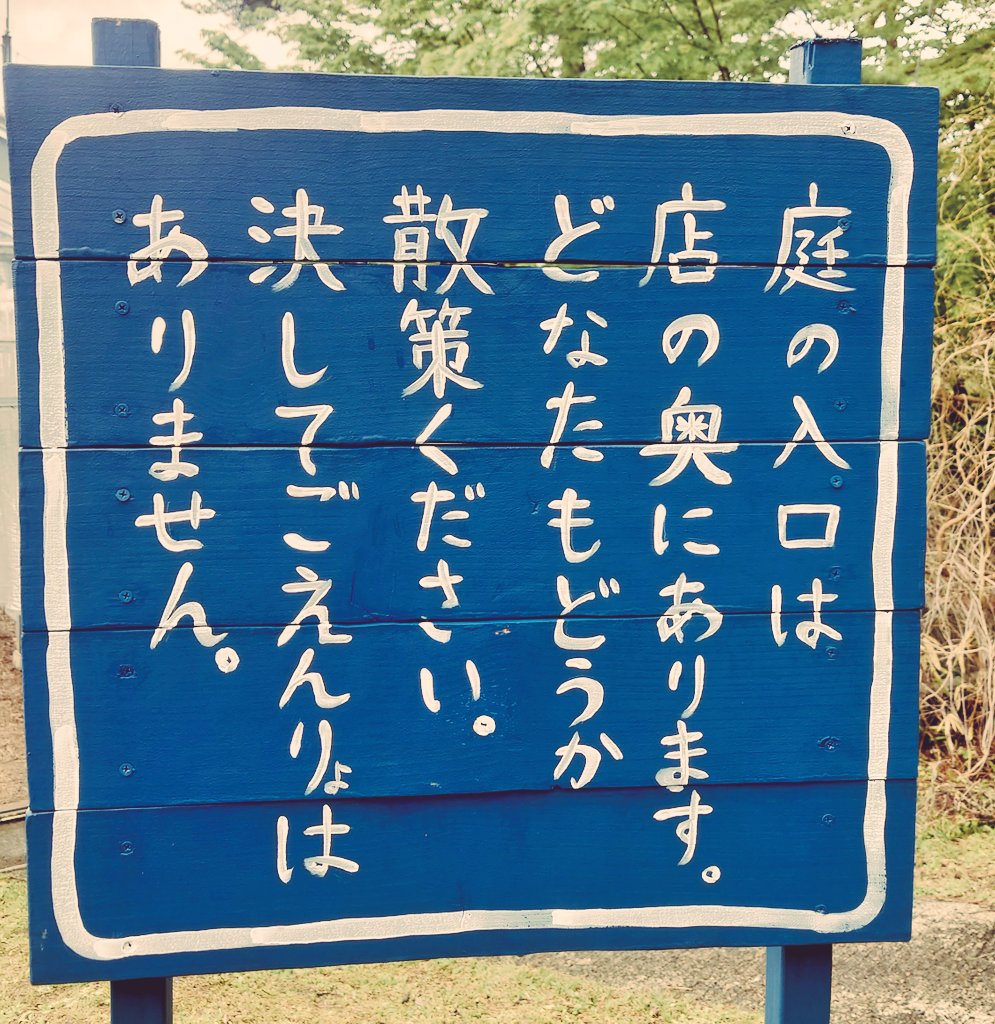 庭の入口は
店の奥にあります。
どなたもどうか
散策ください。
決してごえんりょは
ありません。